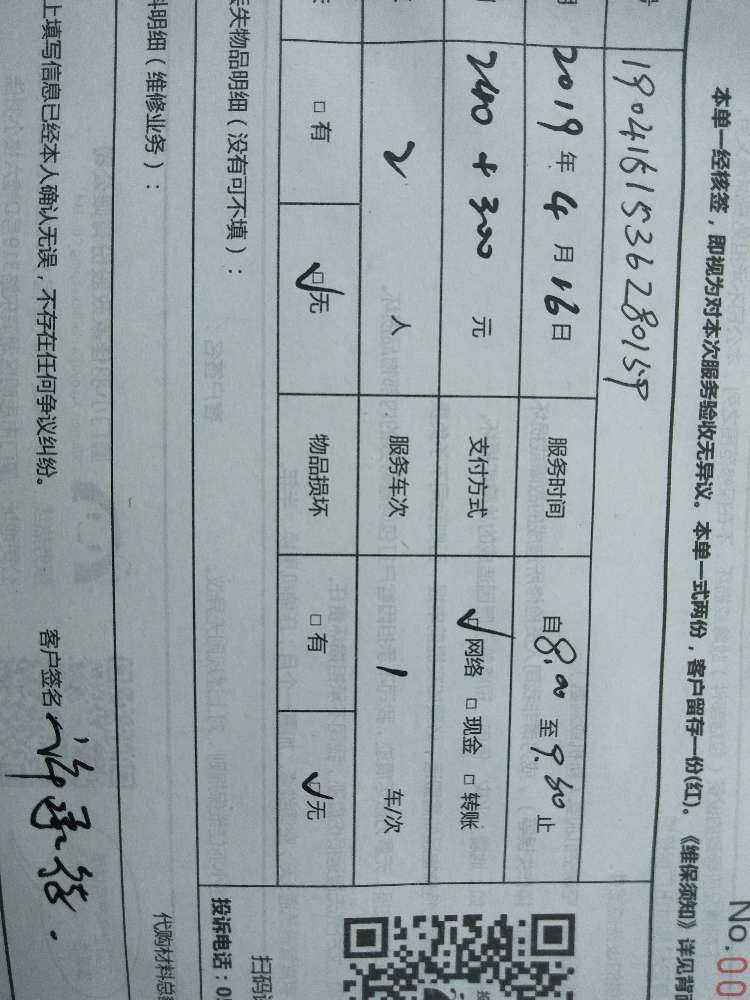 No.00
本单一经核签，即视为对本次服务验收无异议。本单一式两份，客户留存一份(红)。《维保须知》详见背
号 1904161536280159
期 2019年4月16日 服务时间 自8:00至9:30止
240+300元 支付方式 ☑网络 □现金 □转账
2人 服务车次 1车/次
□有 ☑无 物品损坏 □有 ☑无
丢失物品明细（没有可不填）：
扫码
投诉电话：0
料明细（维修业务）：
代购材料总
上填写信息已经本人确认无误，不存在任何争议纠纷。 客户签名